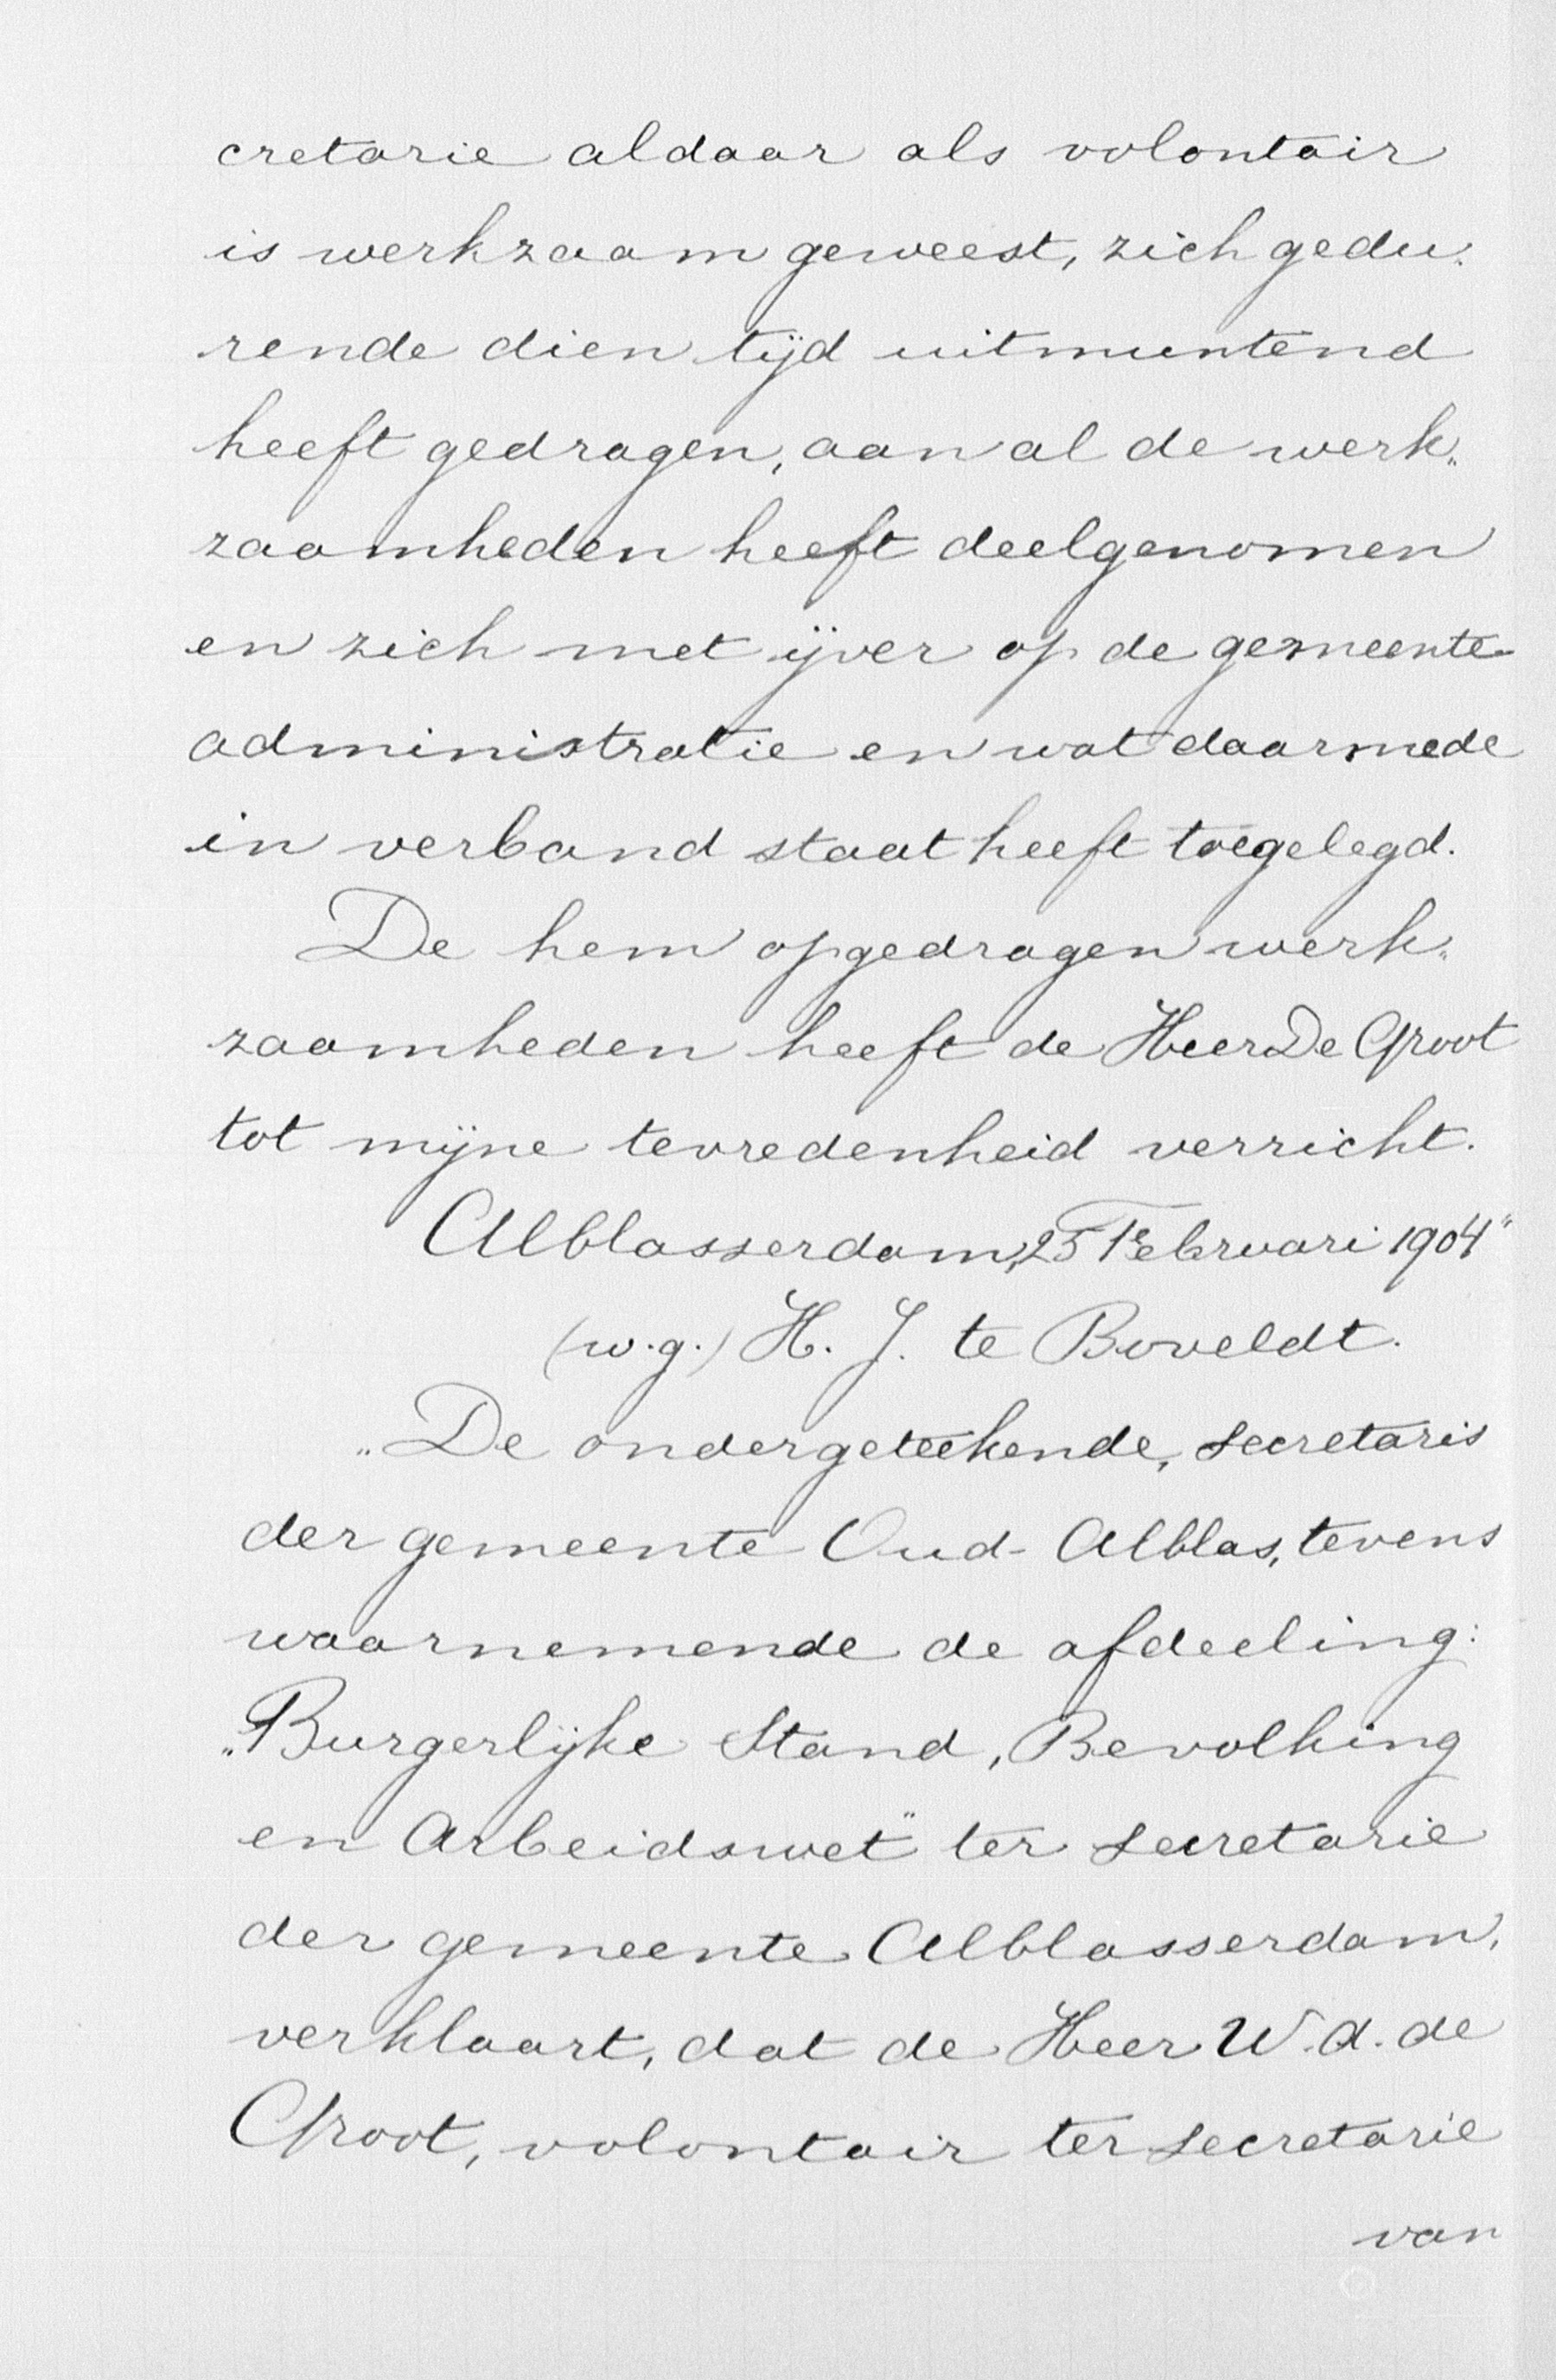 cretarie aldaar als volontair
is werkzaam geweest, zich gedu„
rende dien tijd uitmuntend
heeft gedragen, aan al de werk„
zaamheden heeft deelgenomen
en zich met ijver op de gemeente-
administratie en wat daarmede
in verband staat heeft toegelegd.
De hem opgedragen werk„
zaamheden heeft de Heer De Groot
tot mijne tevredenheid verricht.
Alblasserdam, 25 Februari 1904"
(w.g.) H. J. te Boveldt.
„De ondergeteekende, secretaris
der gemeente Oud-Alblas, tevens
waarnemende de afdeeling:
„Burgerlijke Stand, Bevolking
en Arbeidswet" ter secretarie
der gemeente Alblasserdam,
verklaart, dat de Heer W. A. de
Groot, volontair ter secretarie
van